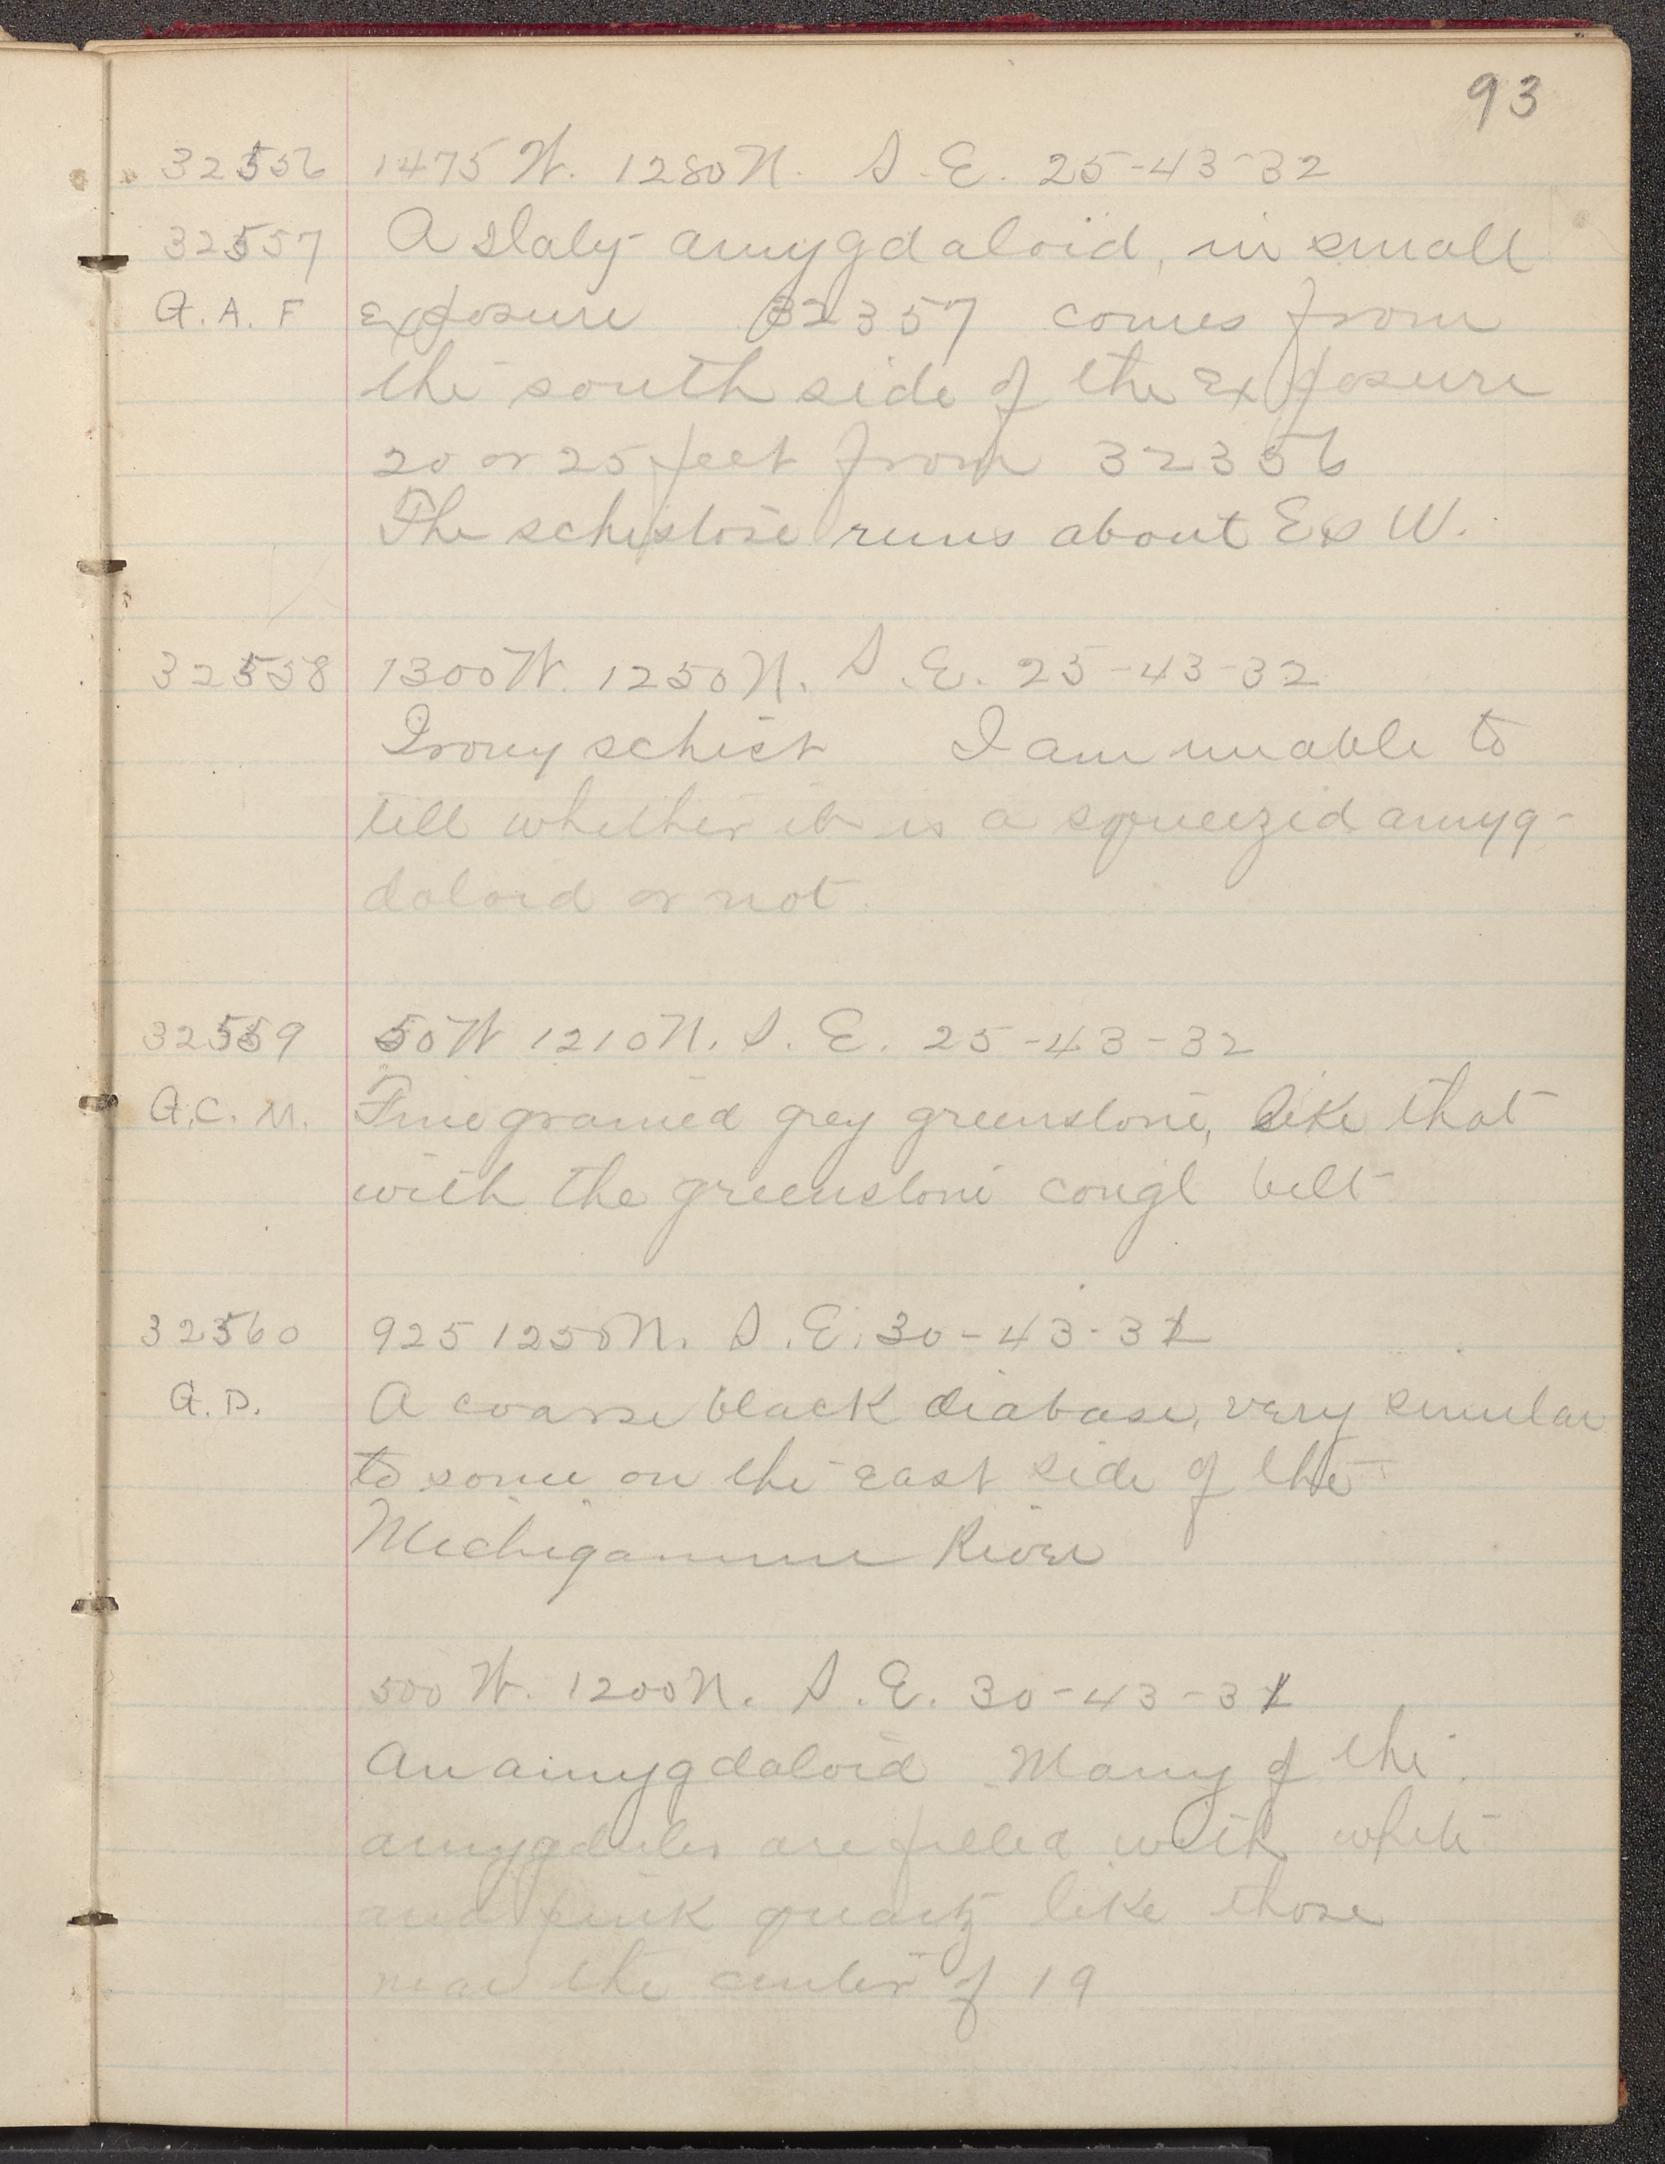 93
32556 1475 W. 1280 N. S. E. 25-43-32
32557 A slaty amygdaloid, in small
G. A. F exposure 32357 comes from
the south side of the exposure
20 or 25 feet from 32356
The schistose runs about E & W.
32558 1300 W. 1250 N. S. E. 25-43-32
Irony schist I am unable to
tell whether it is a squeezed amyg-
daloid or not.
32559 50 W 1210 N. S. E. 25-43-32
G. C. M. Fine grained grey greenstone, like that
with the greenstone congl belt
32560 925 1250 N. S. E. 30-43-31
G. D. A coarse black diabase, very similar
to some on the east side of the
Michigamme River
500 W. 1200 N. S. E. 30-43-31
An amygdaloid Many of the
amygdules are filled with white
and pink quartz like those
near the center of 19